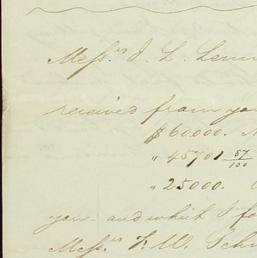 Mess.rs J. L.
received from
$60000.
" 45701 57/100
" 25000.
you and which I
Mess.rs F. W.